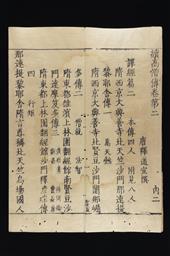 續高僧傳卷第二
內二
唐釋道宣撰
譯經篇二 本傳四人 附見八人
隋西京大興善寺北天竺沙門那連
耶舍傳一 萬天懿
隋西京大興善寺北賢豆沙門闍那崛
多傳二 僧就 法智
隋東都雒濱上林園翻經館南賢豆沙
門達摩笈多傳三
隋東都上林園翻經館沙門釋彥琮傳
四 行矩
那連提黎耶舍隋言尊稱北天竺烏場國人